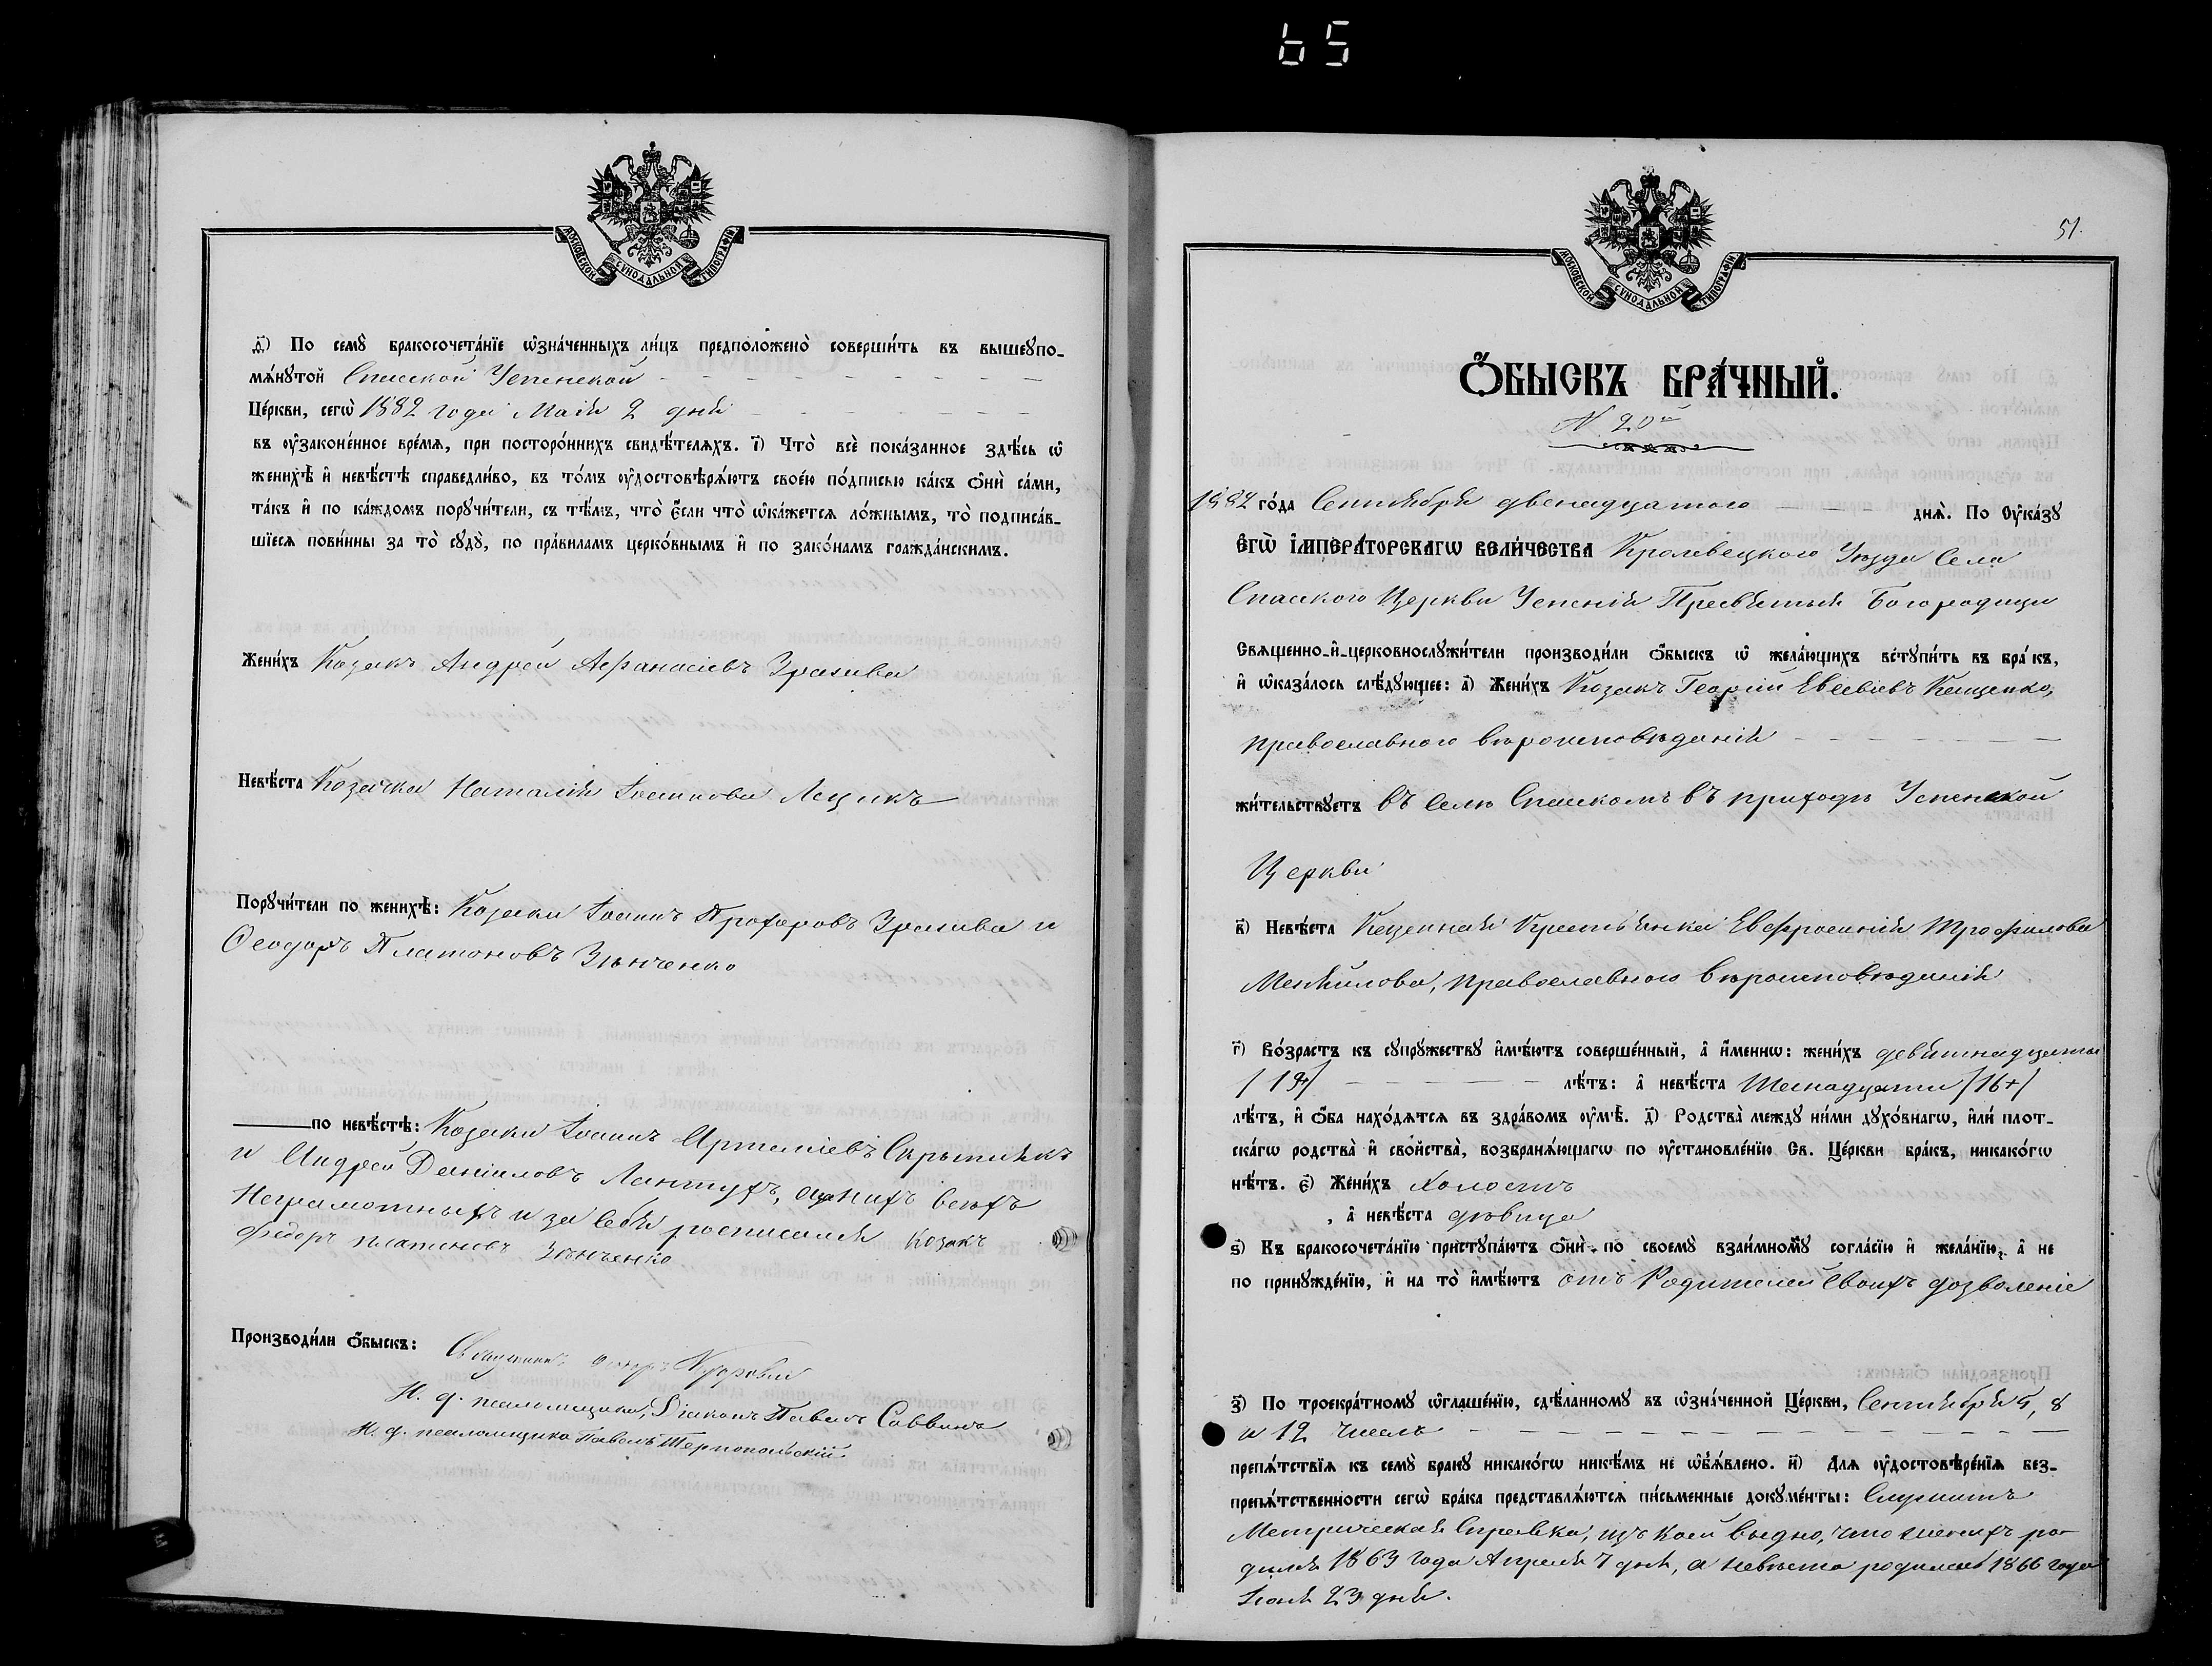 65
МОСКОВСКОЙ СУНОДАЛЬНОЙ ТИПОГРАФІИ
д҃) По семꙋ̀ бракосочета́нїе ѡ҆зна́ченныхъ ли́цъ предположено̀ соверши́ть въ вышеꙋпо-
мѧ́нꙋтой Спасской Успенской
Це́ркви, сегѡ̀ 1882 года Маія 2 дня
въ ᲂу҆зако́ненное вре́мѧ, при посторо́ннихъ свидѣ́телѧхъ. і҃) Что̀ всѐ пока́занное здѣ́сь ѡ҆
женихѣ̀ и҆ невѣ́стѣ справедли́во, въ то́мъ ᲂу҆достовѣрѧ́ютъ свое́ю по́дписью ка́къ ѻ҆нѝ са́ми,
та́къ и҆ по ка́ждомъ порꙋчи́тели, съ тѣ́мъ, что̀ є҆́сли что̀ ѡ҆ка́жетсѧ ло́жнымъ, то̀ подписа́в-
шїесѧ пови́нны за то̀ сꙋдꙋ̀, по пра́виламъ церко́внымъ и҆ по зако́намъ гражда́нскимъ.
Жени́хъ Козакъ Андрей Афанасіевъ Зразива
Невѣ́ста Козачка Наталія Іоаннова Лецикъ
Порꙋчи́тели по женихѣ̀: Козаки Іоаннъ Прохоровъ Зразива и
Ѳеодоръ Платоновъ Зѣнченко
по невѣ́стѣ: Козаки Іоаннъ Скрыпникъ
и Андрей Даніиловъ Лантухъ, а за нихъ всѣхъ
Неграмотныхъ и за себя росписался Козакъ
Федоръ платоновъ Зѣнченко
Производи́ли ѻ҆́быскъ: Священникъ
И. д. псаломщика, Діаконъ Павелъ Саввинъ
И. д. псаломщика Павелъ Тернопольскій
МОСКОВСКОЙ СУНОДАЛЬНОЙ ТИПОГРАФІИ
51.
Ѻ҆́БЫСКЪ БРА́ЧНЫЙ.
N. 20й
1882 го́да Сентября двенадцатого днѧ̀. По ᲂу҆ка́зꙋ
Є҆ГѠ̀ І҆МПЕРА́ТОРСКАГѠ ВЕЛИ́ЧЕСТВА Кролевецкого Уѣзда Села
Спаского Церкви Успенія Пресвятыя Богородицы
Свѧщенно-и҆-церковнослꙋжи́тели производи́ли ѻ҆́быскъ ѡ҆ жела́ющихъ встꙋпи́ть въ бра́къ,
и҆ ѡ҆каза́лось слѣ́дꙋющее: а҃) Жени́хъ Козакъ Георгій Евсевіевъ Кищенко,
православного вѣроисповѣданія
жи́тельствꙋетъ въ Селѣ Спаскомъ въ приходѣ Успенской
Церкви
в҃) Невѣ́ста Казенная Крестьянка Евфросинія Трофимова
православного вѣроисповѣданія
г҃) Во́зрастъ къ сꙋпрꙋ́жествꙋ и҆мѣ́ютъ соверше́нный, а҆ и҆́меннѡ: жени́хъ девятнадцати
/19/ лѣ́тъ: а҆ невѣ́ста Шеснадцати /16+/
лѣ́тъ, и҆ ѻ҆́ба нахо́дѧтсѧ въ здра́вомъ ᲂу҆мѣ̀. д҃) Родства̀ междꙋ ни́ми дꙋхо́внагѡ, и҆лѝ плот-
ска́гѡ родства̀ и҆ сво́йства̀, возбранѧ́ющагѡ по ᲂу҆становле́нїю Св. Це́ркви бра́къ, никако́гѡ
нѣ́тъ. є҃) Жени́хъ холостъ
, а҆ невѣ́ста дѣвица
ѕ҃) Къ бракосочета́нїю пристꙋпа́ютъ ѻ҆нѝ по своемꙋ̀ взаи́мномꙋ согла́сїю и҆ жела́нїю, а҆ не
по принꙋжде́нїю, и҆ на то̀ и҆мѣ́ютъ отъ Родителей Своихъ дозволеніе
з҃) По троекра́тномꙋ ѡ҆глаше́нїю, сдѣ́ланномꙋ въ ѡ҆зна́ченной Це́ркви, Сентября 5, 8
и 12 числъ
препѧ́тствїѧ къ семꙋ̀ бракꙋ никако́гѡ никѣ́мъ не ѡ҆б̾ѧ́влено. и҃) Длѧ ᲂу҆достовѣре́нїѧ без-
препѧ́тственности сегѡ̀ бра́ка представлѧ́ютсѧ пи́сьменные докꙋме́нты: Служитъ
Метрическая Справка, изъ коей видно, что женихъ ро-
дился 1863 года Апреля 7 дня, а невѣста родилась 1866 года
Іюня 23 дня.